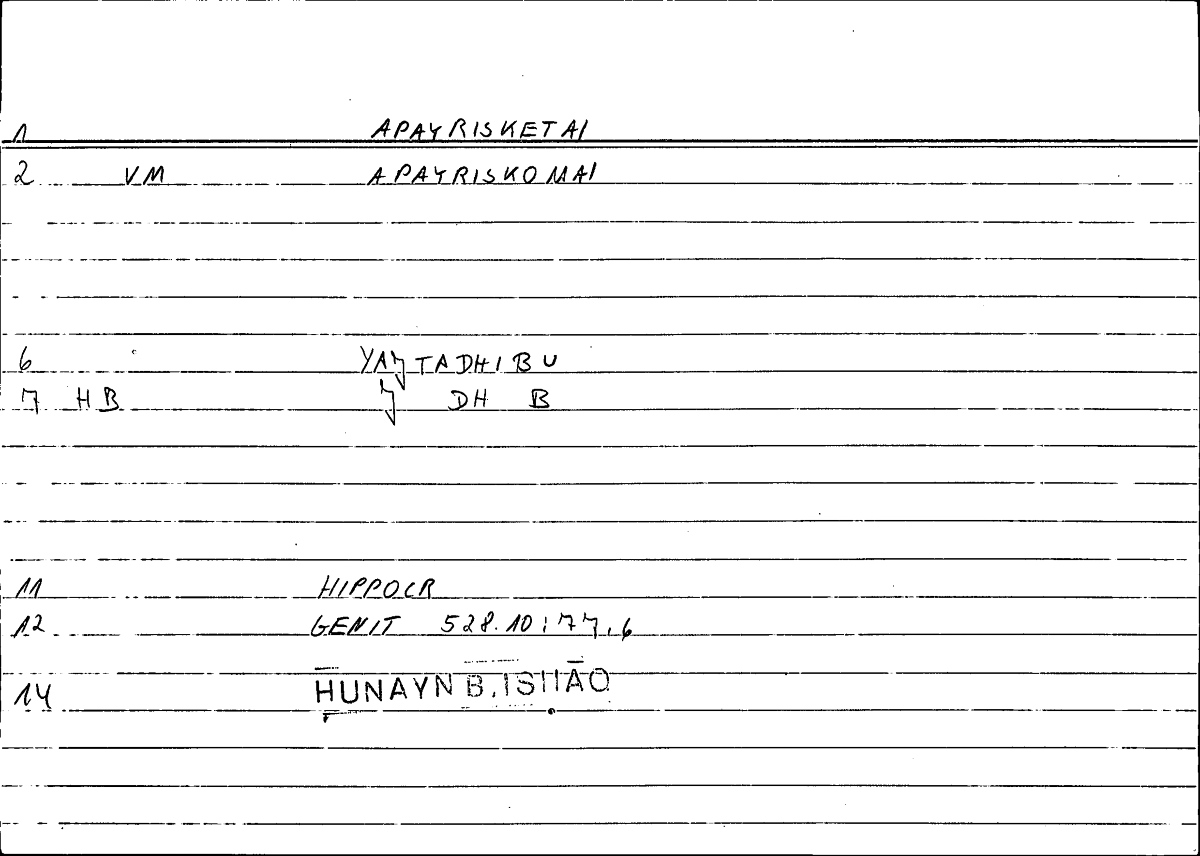 1 APAYRISKETAI
2 VM APAYRISKOMAI
6 YAJTADHIBU
7 HB J DH B
11 HIPPOCR
12 GENIT 528.10; 77,6
14 HUNAYN B. ISHĀQ